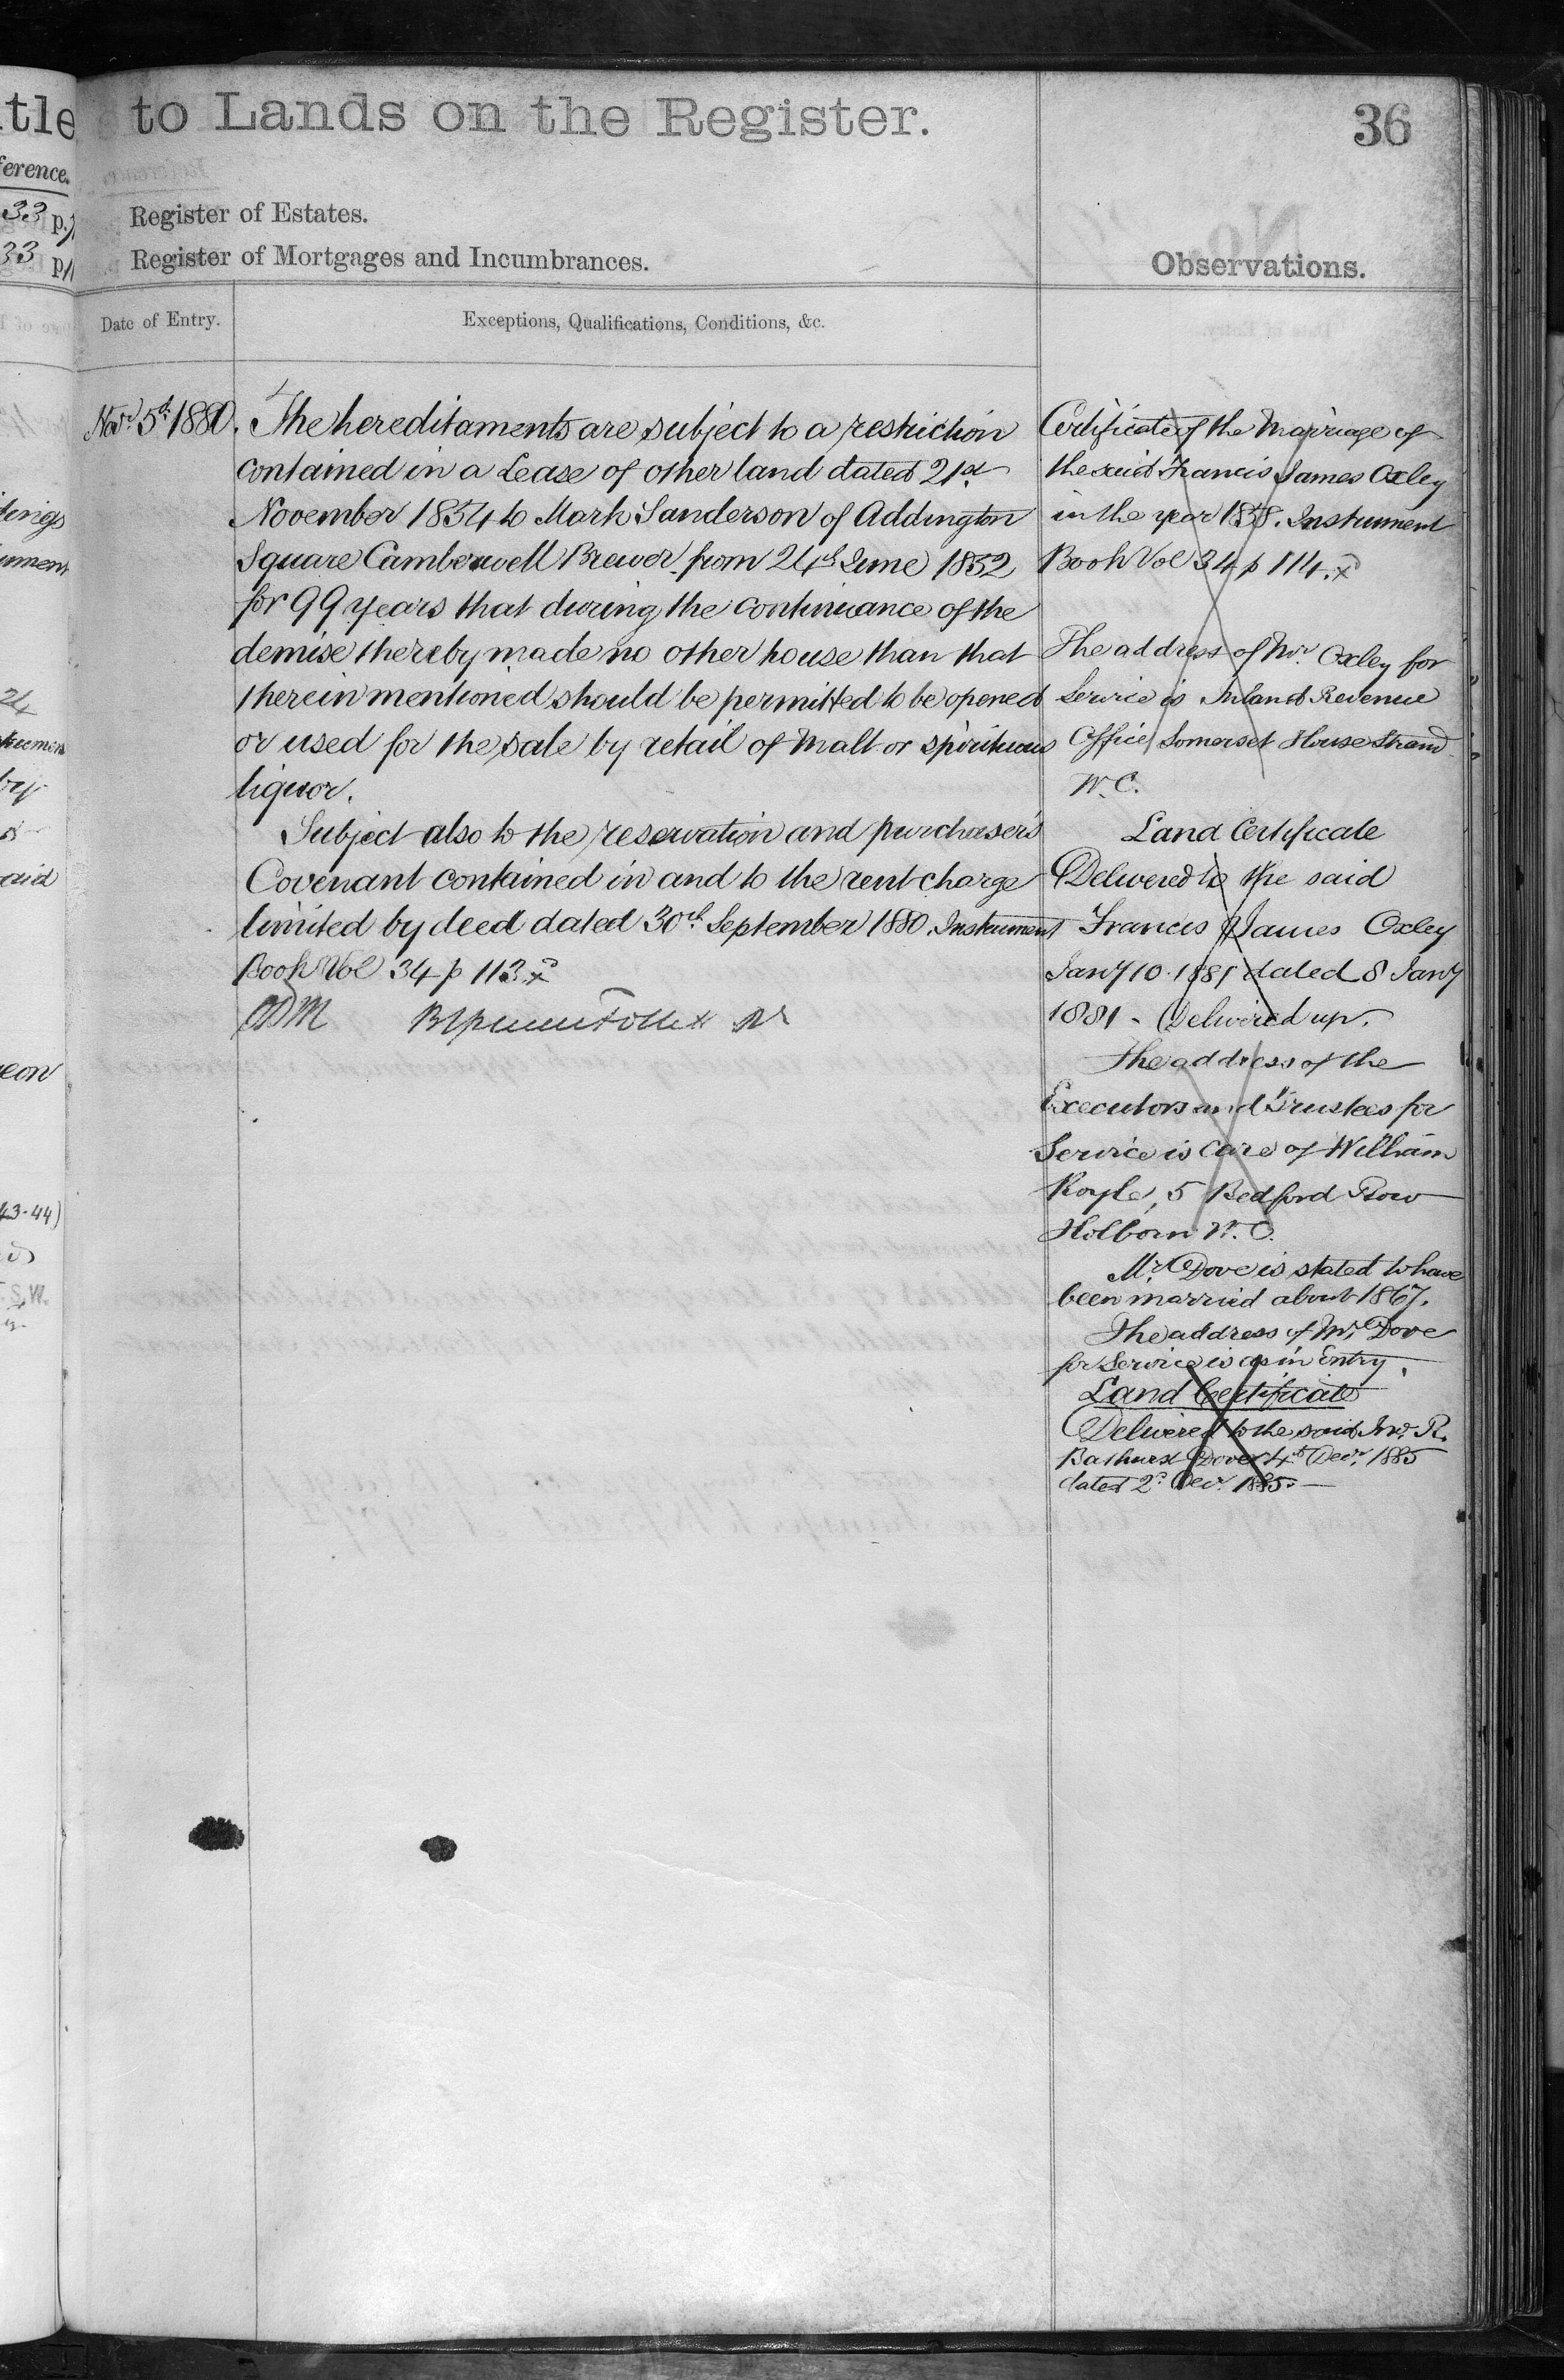 to Lands on the Register.
36
Register of Estates.
Register of Mortgages and Incumbrances.
Observations.
Date of Entry.
Exceptions, Qualifications, Conditions, &c.
Novr. 5th 1880.
The hereditaments are subject to a restriction
contained in a Lease of other land dated 21st
November 1854 to Mark Sanderson of Addington
Square Camberwell Brewer from 24th June 1852
for 99 years that during the continuance of the
demise thereby made no other house than that
therein mentioned should be permitted to be opened
or used for the sale by retail of Malt or spirituous
liquor.
Subject also to the reservation and purchaser's
Covenant contained in and to the rent charge
limited by deed dated 30th September 1880. Instrument
Book Vol 34 p 113.
Certificate of the Marriage of
the said Francis James Oxley
in the year 1858. Instrument
Book Vol 34 p 114.
The address of Mr. Oxley for
Service is Inland Revenue
Office Somerset House Strand
W.C.
Land Certificate
Delivered to the said
Francis James Oxley
Jany 10. 1881 dated 8 Jany
1881 - Delivered up.
The address of the
Executors and Trustees for
Service is care of William
5 Bedford Row
Holborn W.C.
Mr. Dove is stated to have
been married about 1867.
The address of Mr. Dove
for Service is as in Entry.
Land Certificate
Delivered to the said R.
Bathurst Dove 4th Decr. 1885
dated 2d. Decr. 1885.
tle
ference.
33 p.
33 p
24
by
aid
eon
43-44)
S.W.